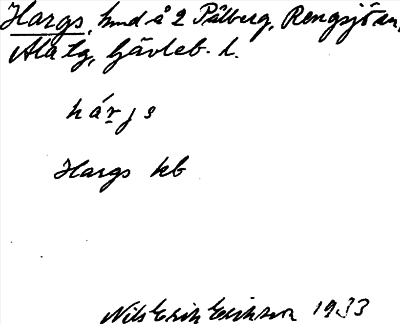 Hargs, hmd å 2 Pålberg, Rengsjö sn,
Ala tg, Gävleb. l.
hárjs
Hargs kb
Nils Erik Erikson 1933